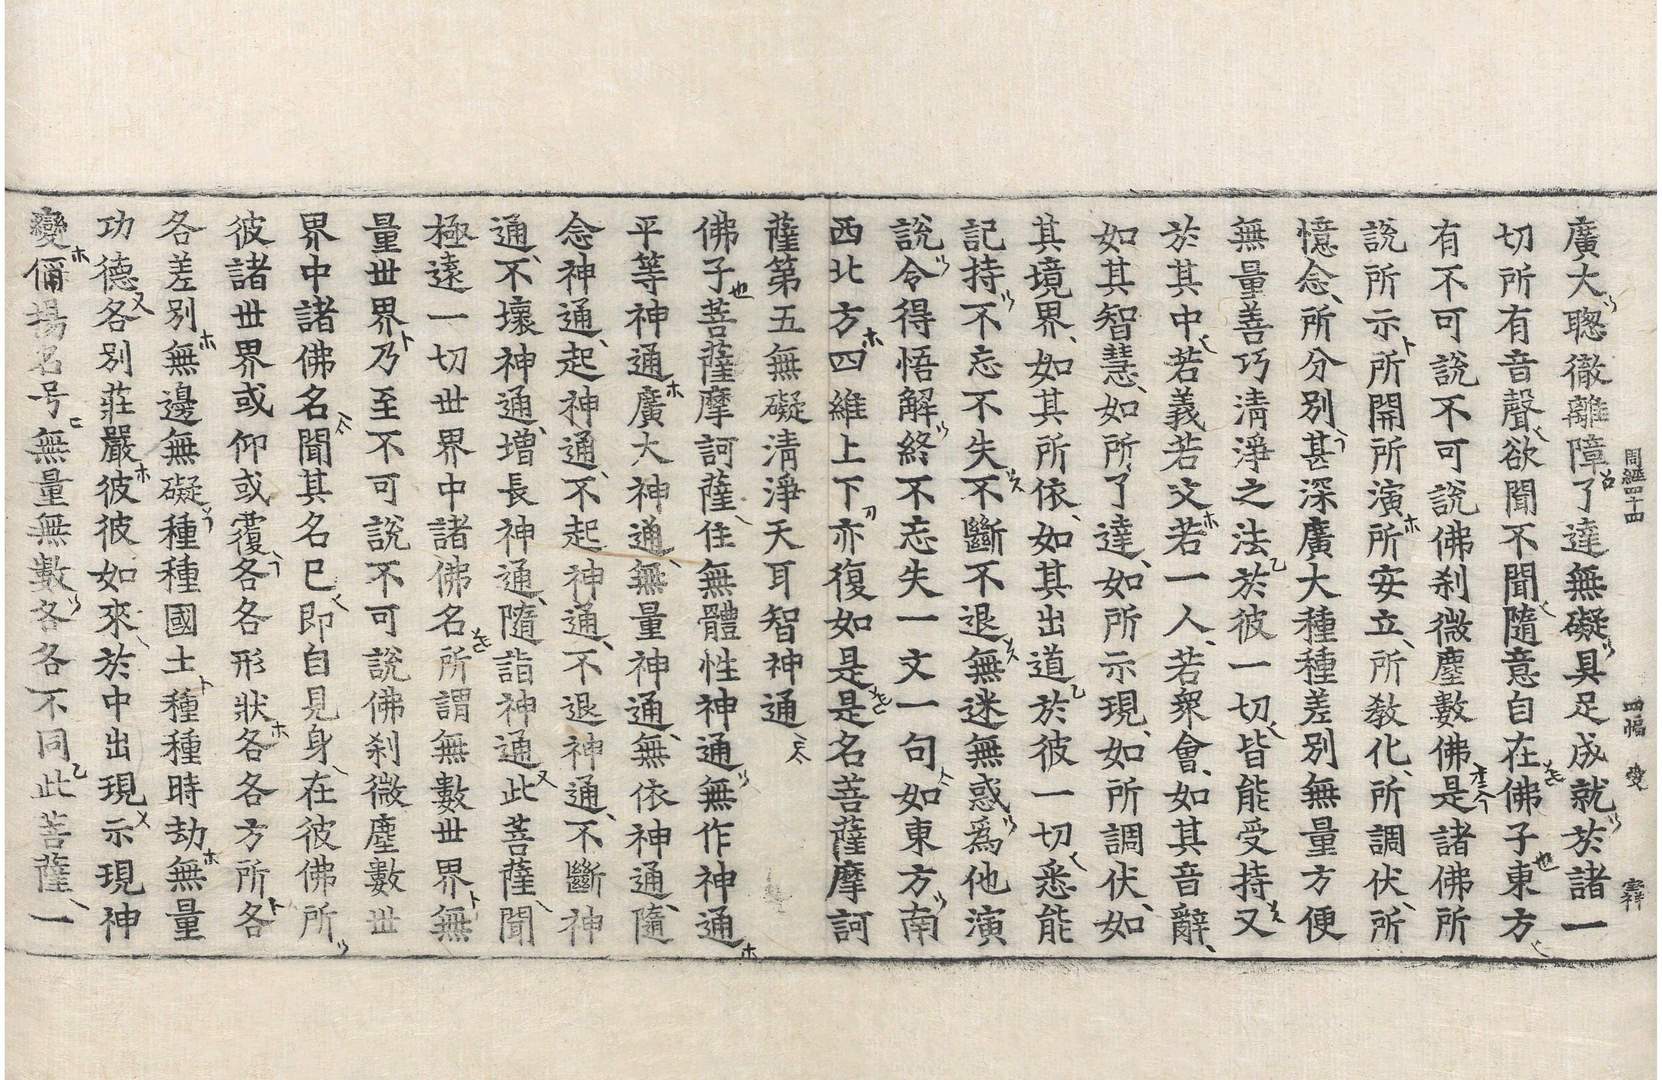 周經四十四 四幅
廣大聰徹離障了達無礙具足成就於諸一
切所有音聲欲聞不聞隨意自在佛子東方
有不可說不可說佛刹微塵數佛是諸佛所
說所示所開所演所安立所教化所調伏所
憶念所分別甚深廣大種種差別無量方便
無量善巧清淨之法於彼一切皆能受持又
於其中若義若文若一人若衆會如其音辭
如其智慧如所了達如所示現如所調伏如
其境界如其所依如其出道於彼一切悉能
記持不忘不失不斷不退無迷無惑爲他演
說令得悟解終不忘失一文一句如東方南
西北方四維上下亦復如是是名菩薩摩訶
薩第五無礙清淨天耳智神通
佛子菩薩摩訶薩住無體性神通無作神通
平等神通廣大神通無量神通無依神通隨
念神通起神通不起神通不退神通不斷神
通不壞神通增長神通隨詣神通此菩薩聞
極遠一切世界中諸佛名所謂無數世界無
量世界乃至不可說不可說佛刹微塵數世
界中諸佛名聞其名已即自見身在彼佛所
彼諸世界或仰或覆各各形狀各各方所各
各差別無邊無礙種種國土種種時劫無量
功德各別莊嚴彼彼如來於中出現示現神
變偁揚名号無量無數各各不同此菩薩一